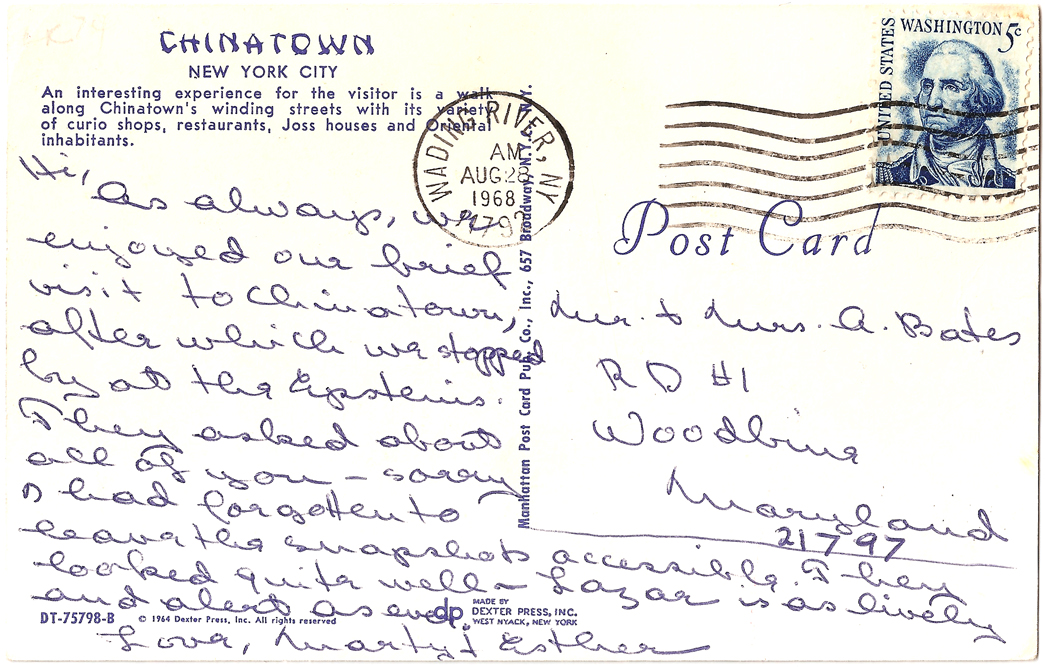 CHINATOWN
NEW YORK CITY
An interesting experience for the visitor is a walk
along Chinatown's winding streets with its variety
of curio shops, restaurants, Joss houses and Oriental
inhabitants.
Hi,
As always, we
enjoyed our brief
visit to Chinatown,
after which we stopped
by at the Epsteins.
They asked about
all of you – sorry
I had forgotten to
leave the snapshots accessible. They
looked quite well – Lazar is as lively
and alert as ever.
Love, Marty & Esther
DT-75798-B
© 1964 Dexter Press, Inc. All rights reserved
dp
MADE BY
DEXTER PRESS, INC.
WEST NYACK, NEW YORK
Manhattan Post Card Pub. Co., Inc., 657 Broadway, N.Y., N.Y.
WADING RIVER, NY
AM
AUG 28
1968
11792
UNITED STATES
WASHINGTON 5c
Post Card
Mr. & Mrs. A. Bates
RD #1
Woodbine
Maryland
21797